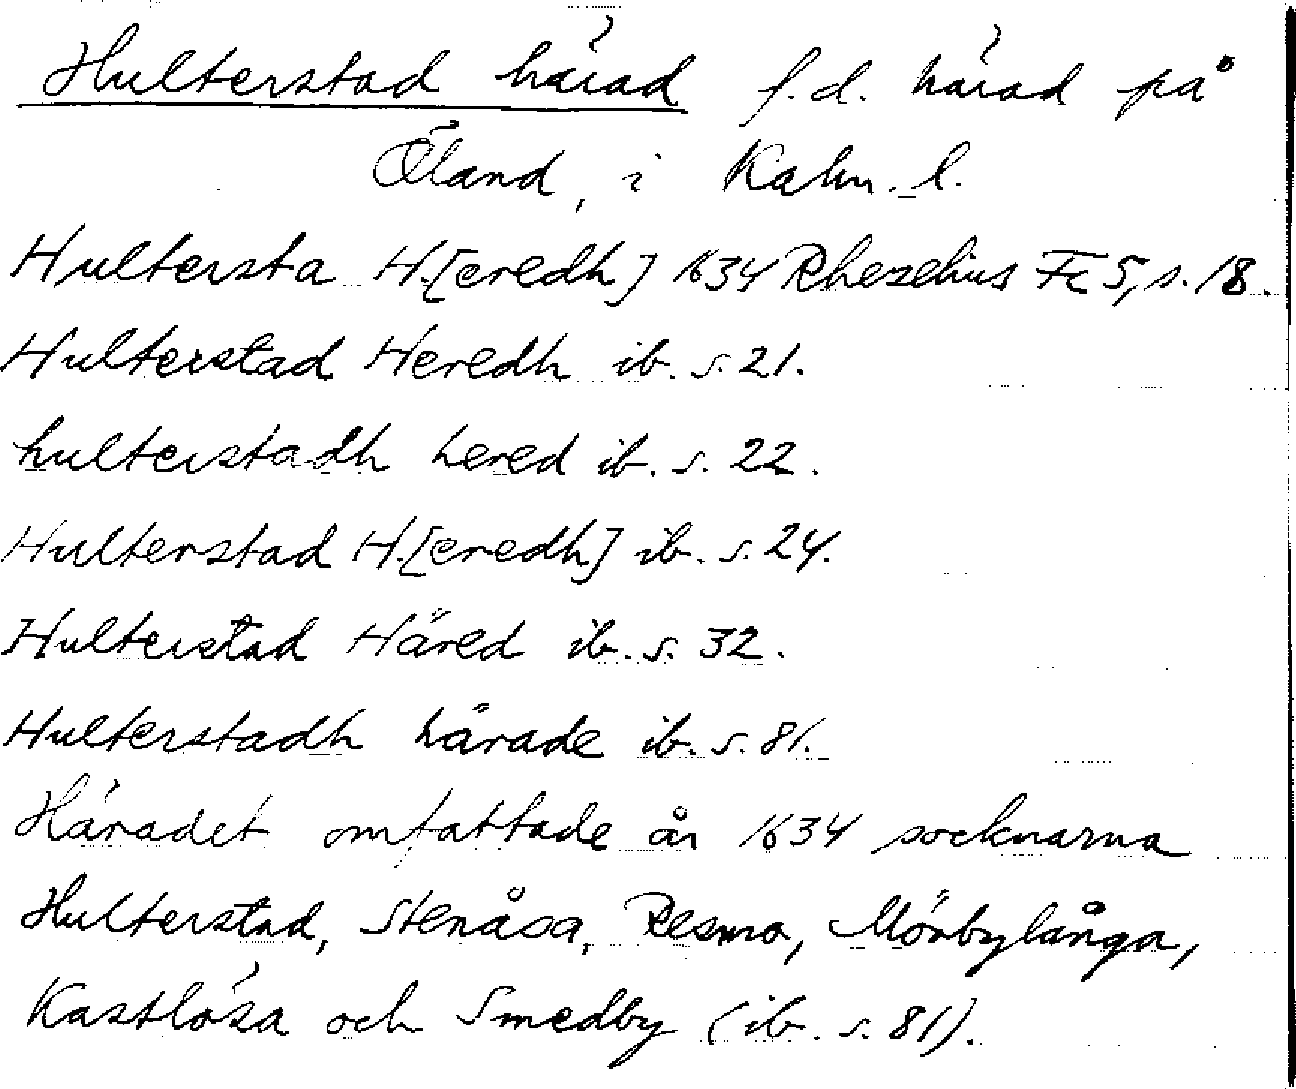 Hulterstad härad f.d. härad på
Öland, i Kalm. l.
Hultersta H.[eredh] 1634 Rhezelius Fc 5, s. 18.
Hulterstad Heredh ib. s. 21.
hulterstadh hered ib. s. 22.
Hulterstad H.[eredh] ib. s. 24.
Hulterstad Häred ib. s. 32.
Hulterstadh hårade ib. s. 81.
Häradet omfattade år 1634 socknarna
Hulterstad, Stenåsa, Resmo, Mörbylånga,
Kastlösa och Smedby (ib. s. 81).